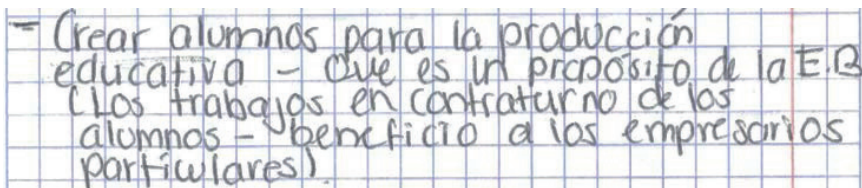 - Crear alumnos para la producción
educativa - Que es un proposito de la E.B
(los trabajos en contraturno de los
alumnos - beneficio a los empresarios
particulares)